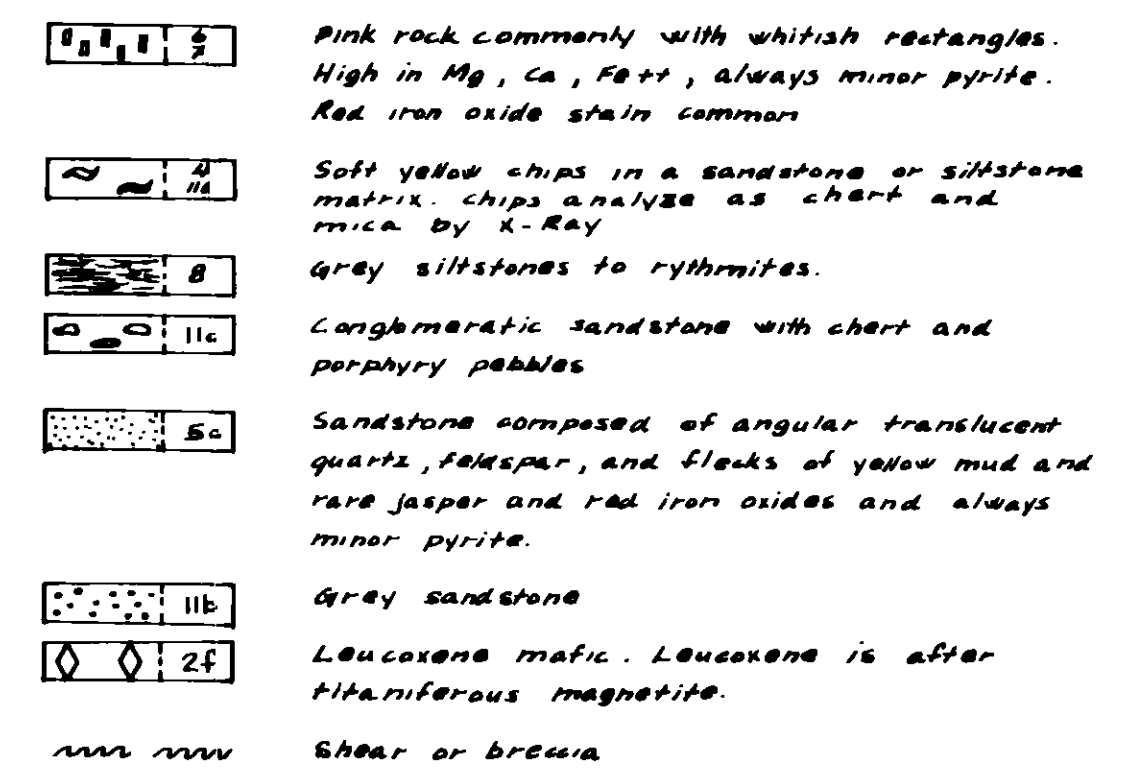 6 Pink rock commonly with whitish rectangles.
7 High in Mg, Ca, Fe++, always minor pyrite.
Red iron oxide stain common
4 Soft yellow chips in a sandstone or siltstone
11a matrix. chips analyze as chert and
mica by X-Ray
8 Grey siltstones to rythmites.
11c Conglomeratic sandstone with chert and
porphyry pebbles
5c Sandstone composed of angular translucent
quartz, feldspar, and flecks of yellow mud and
rare jasper and red iron oxides and always
minor pyrite.
11b Grey sandstone
2f Leucoxene mafic. Leucoxene is after
titaniferous magnetite.
Shear or breccia